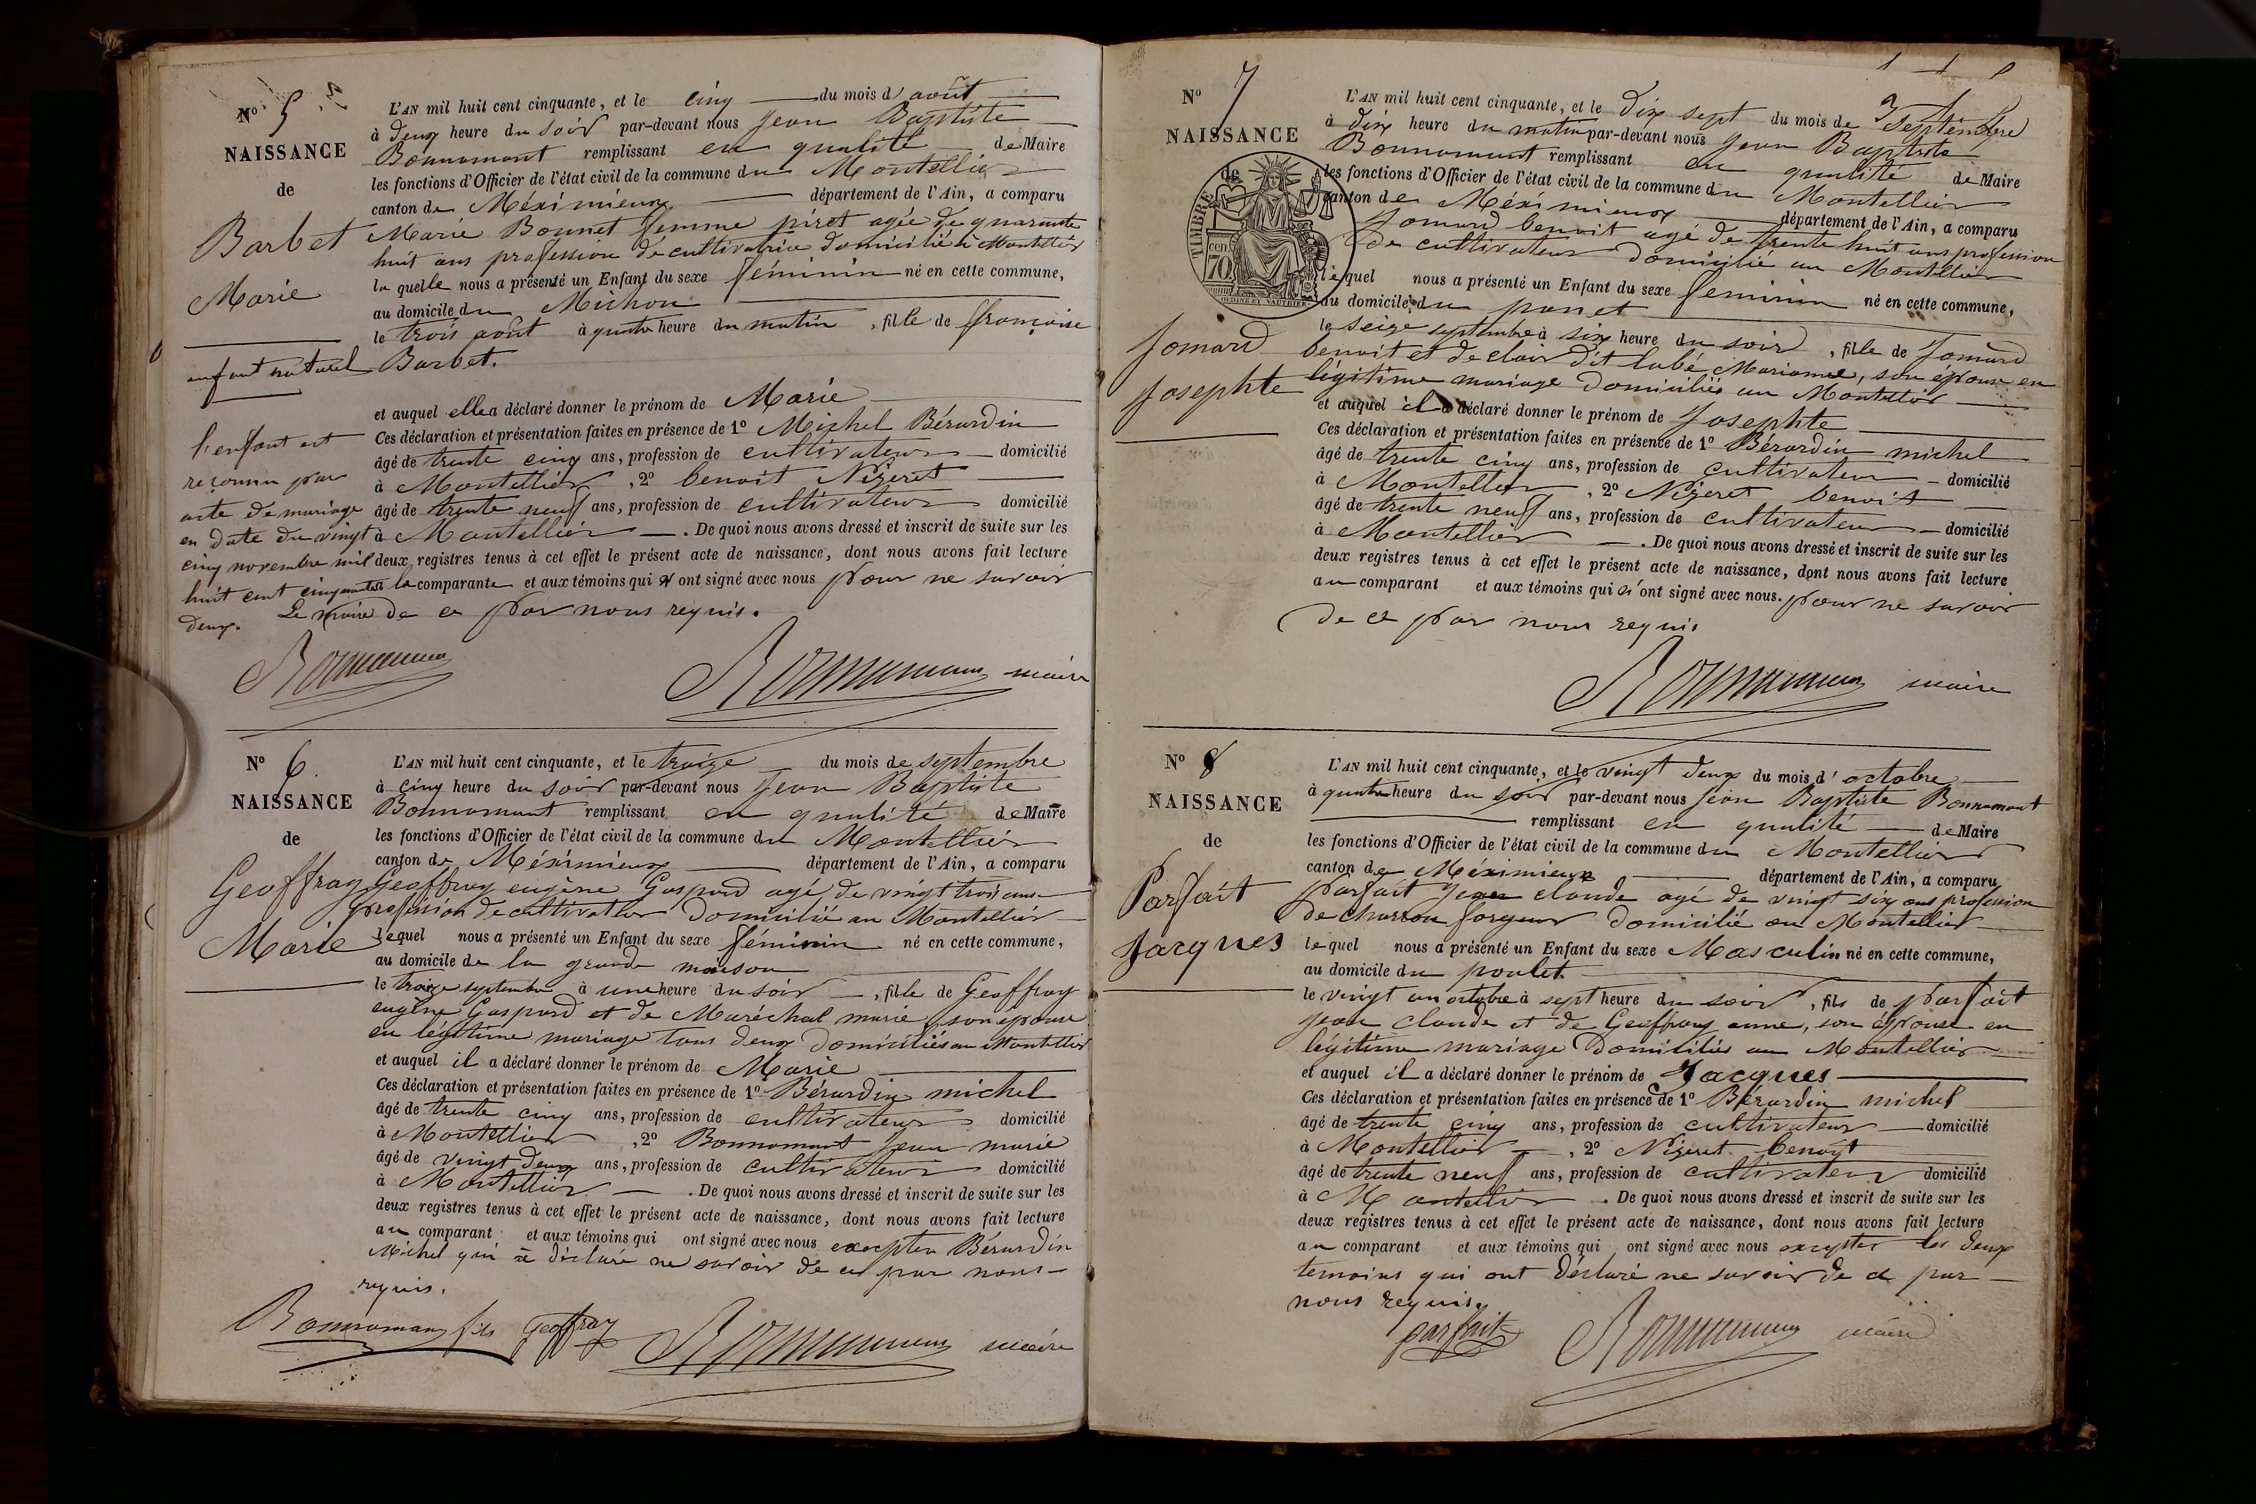 No 5
NAISSANCE
de
Barbet
Marie
enfant naturel
l'enfant est
reconnu par
acte de mariage
en date du vingt
cinq novembre mil
huit cent cinquante
deux.
Le maire
L'AN mil huit cent cinquante, et le cinq du mois d'août
à deux heure du soir par-devant nous Jean Baptiste
Bonnamant remplissant en qualité de Maire
les fonctions d'Officier de l'état civil de la commune du Montellier
canton de Méximieux département de l'Ain, a comparu
Marie Bonnet femme pirot agée de quarante
huit ans profession de cultivatrice domicilié à Montellier
la quelle nous a présenté un Enfant du sexe féminin né en cette commune,
au domicile du Michon
le trois août à quatre heure du matin, fille de françoise
Barbet.
et auquel elle a déclaré donner le prénom de Marie
Ces déclaration et présentation faites en présence de 1o Michel Bérardin
âgé de trente cinq ans, profession de cultivateur domicilié
à Montellier, 2o benoit Nizeret
âgé de trente neuf ans, profession de cultivateur domicilié
à Montellier. De quoi nous avons dressé et inscrit de suite sur les
deux registres tenus à cet effet le présent acte de naissance, dont nous avons fait lecture
à la comparante et aux témoins qui n'ont signé avec nous pour ne savoir
de ce par nous requis.
maire
No 6
NAISSANCE
de
Geoffray
Marie
L'AN mil huit cent cinquante, et le treize du mois de septembre
à cinq heure du soir par-devant nous Jean Baptiste
Bonnamant remplissant en qualité de Maire
les fonctions d'Officier de l'état civil de la commune du Montellier
canton de Méximieux département de l'Ain, a comparu
Geoffray eugène Gaspard agé de vingt trois ans
profession de cultivateur domicilié au Montellier
lequel nous a présenté un Enfant du sexe féminin né en cette commune,
au domicile de la grande maison
le treize septembre à une heure du soir, fille de Geoffray
eugène Gaspard et de Maréchal marie, son épouse
en légitime mariage tous deux domiciliés au Montellier
et auquel il a déclaré donner le prénom de Marie
Ces déclaration et présentation faites en présence de 1o Bérardin michel
âgé de trente cinq ans, profession de cultivateur domicilié
à Montellier, 2o Bonnamant Jean marie
âgé de vingt deux ans, profession de cultivateur domicilié
à Montellier. De quoi nous avons dressé et inscrit de suite sur les
deux registres tenus à cet effet le présent acte de naissance, dont nous avons fait lecture
au comparant et aux témoins qui ont signé avec nous excepter Bérardin
Michel qui a déclaré ne savoir de ce par nous
requis.
Bonnamant fils Geoffray maire
No 7
NAISSANCE
de
TIMBRE
cen.
70
Jomard
Josephte
L'AN mil huit cent cinquante, et le dix sept du mois de Septembre
à dix heure du matin par-devant nous Jean Baptiste
Bonnamant remplissant en qualité de Maire
les fonctions d'Officier de l'état civil de la commune du Montellier
canton de Méximieux département de l'Ain, a comparu
Jomard benoit agé de trente huit ans profession
de cultivateur domicilié au Montellier
lequel nous a présenté un Enfant du sexe feminin né en cette commune,
au domicile du panet
le seize septembre à six heure du soir, fille de Jomard
benoit et de clair dit labé Marianne, son épouse en
légitime mariage domiciliés au Montellier
et auquel il a déclaré donner le prénom de Josephte
Ces déclaration et présentation faites en présence de 1o Bérardin michel
âgé de trente cinq ans, profession de cultivateur domicilié
à Montellier, 2o Nizeret benoit
âgé de trente neuf ans, profession de cultivateur domicilié
à Montellier. De quoi nous avons dressé et inscrit de suite sur les
deux registres tenus à cet effet le présent acte de naissance, dont nous avons fait lecture
au comparant et aux témoins qui n'ont signé avec nous. pour ne savoir
de ce par nous requis
maire
No 8
NAISSANCE
de
Parfait
Jacques
L'AN mil huit cent cinquante, et le vingt deux du mois d'octobre
à quatre heure du soir par-devant nous Jean Baptiste Bonnamant
remplissant en qualité de Maire
les fonctions d'Officier de l'état civil de la commune du Montellier
canton de Méximieux département de l'Ain, a comparu
parfait Jean claude agé de vingt six ans profession
de charron forgeur domicilié au Montellier
lequel nous a présenté un Enfant du sexe Masculin né en cette commune,
au domicile du poulet
le vingt un octobre à sept heure du soir, fils de parfait
jean claude et de Geoffray anne, son épouse en
légitime mariage domiciliés au Montellier
et auquel il a déclaré donner le prénom de Jacques
Ces déclaration et présentation faites en présence de 1o Bérardin michel
âgé de trente cinq ans, profession de cultivateur domicilié
à Montellier, 2o Nizeret benoit
âgé de trente neuf ans, profession de cultivateur domicilié
à Montellier. De quoi nous avons dressé et inscrit de suite sur les
deux registres tenus à cet effet le présent acte de naissance, dont nous avons fait lecture
au comparant et aux témoins qui ont signé avec nous excepter les deux
temoins qui ont déclaré ne savoir de ce par
nous requis.
parfait maire